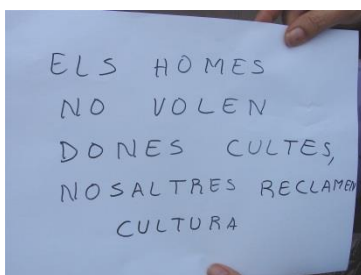 ELS HOMES
NO VOLEN
DONES CULTES,
NOSALTRES RECLAMEN
CULTURA